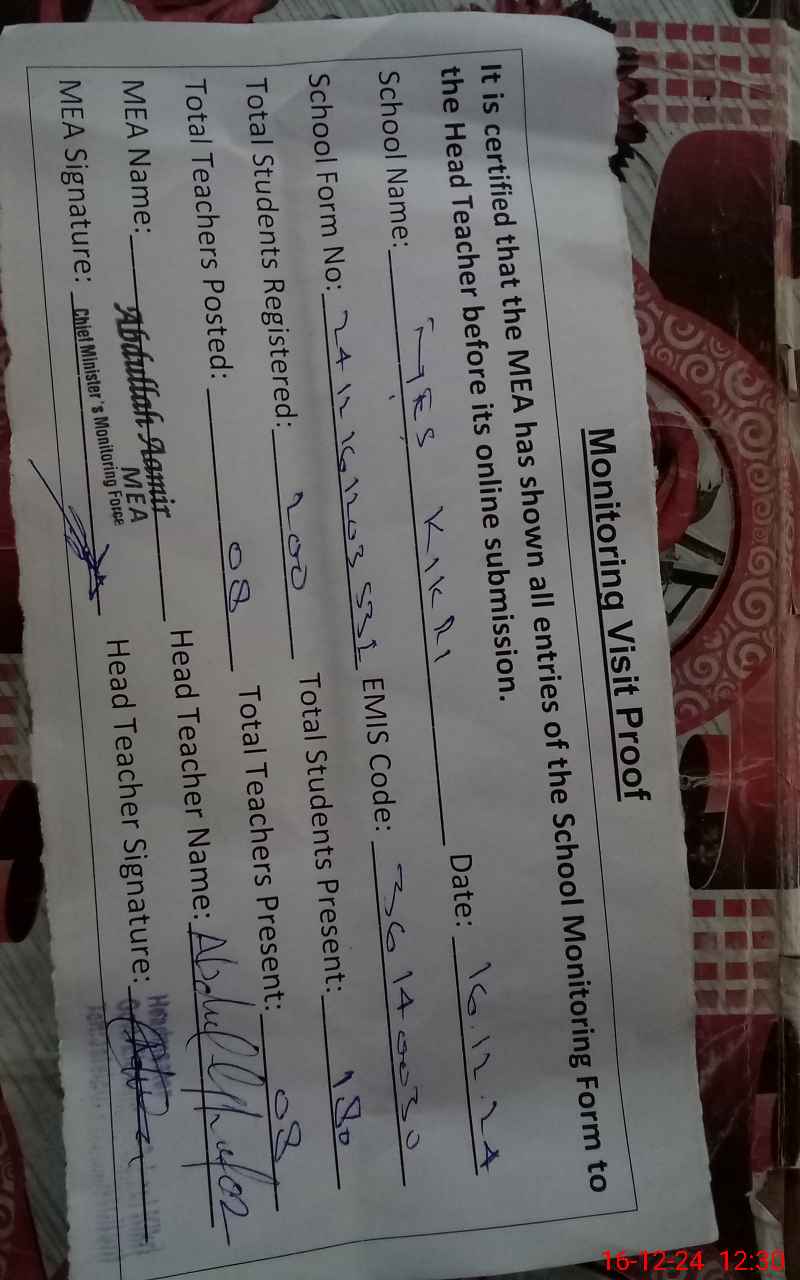 Monitoring Visit Proof
It is certified that the MEA has shown all entries of the School Monitoring Form to
the Head Teacher before its online submission.
School Name: KIKRI Date: 16.12.24
School Form No: EMIS Code: 36140030
Total Students Registered: 200 Total Students Present: 180
Total Teachers Posted: 08 Total Teachers Present: 08
MEA Name: Abdullah Aamir Head Teacher Name: Abdul
MEA
MEA Signature: Chief Minister's Monitoring Force Head Teacher Signature:
16-12-24 12:30